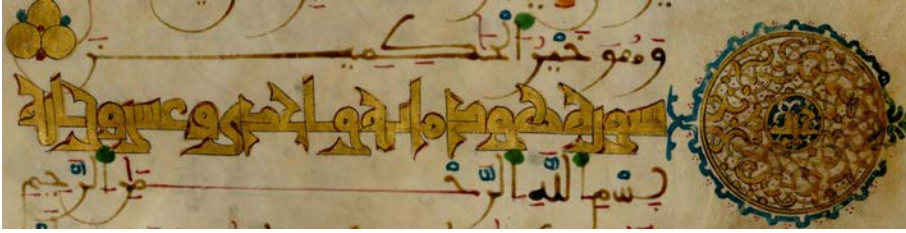 وَهُوَ خَيْرُ الْحَكِمِينَ
سورة هود ماية واحدى وعشرون اية
بِسْمِ اللَّهِ الرَّحْمَنِ الرَّحِيمِ